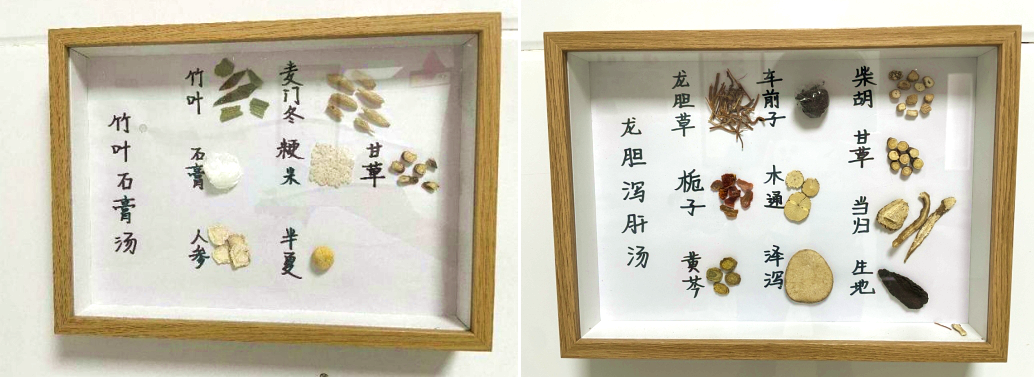 竹叶石膏汤
竹叶
石膏
人参
麦门冬
粳米
半夏
甘草
龙胆泻肝汤
龙胆草
栀子
黄芩
车前子
木通
泽泻
柴胡
甘草
当归
生地